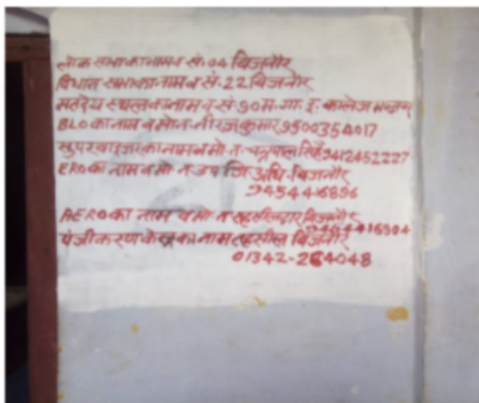 लोक सभा का नाम व सं. 04 बिजनौर
विधान सभा का नाम व सं. 22 बिजनौर
मतदेय स्थल का नाम व सं. 90 म. गा. इ. कालेज
BLO का नाम व मो न. नीरज कुमार 9500354017
सुपरवाइजर का नाम व मो. न. चन्द्रपाल सिंह 9412452227
ERO का नाम व मो न उप जि. अधि. बिजनौर
9454416896
AERO का नाम व मो न तहसीलदार बिजनौर
9454416904
पंजीकरण केन्द्र का नाम तहसील बिजनौर
01342-264048